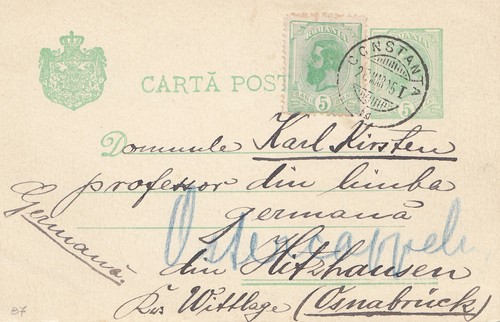 ROMANIA
CARTĂ POST
5
5
CONSTANTA
Domnule Karl Kirsten
professor din limba
germană
Germană.
Ostercappeln
din Hitzhausen
Krs Wittlage (Osnabrück)
87